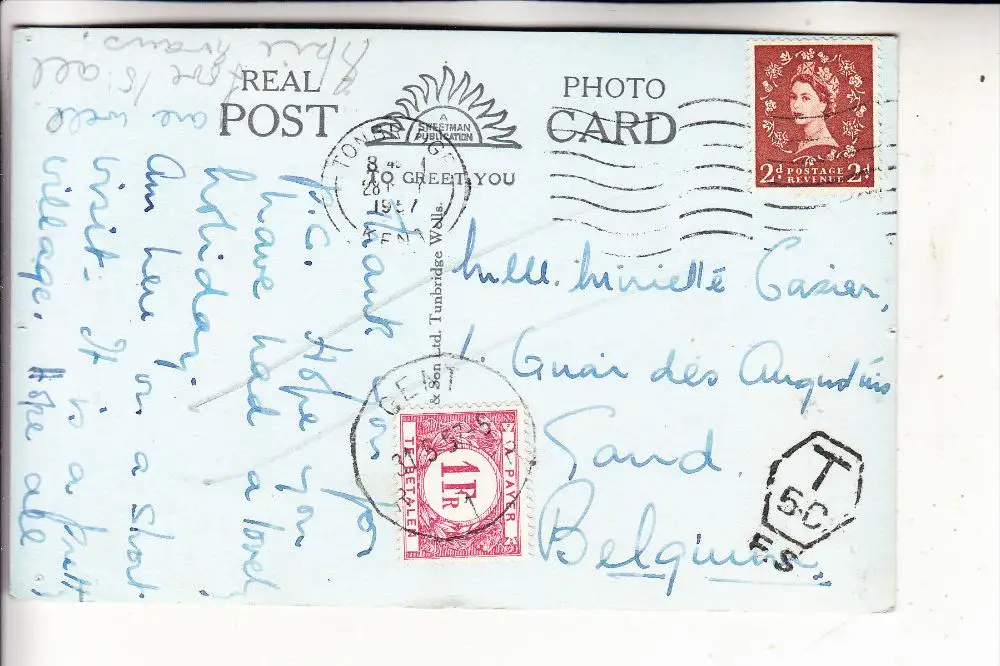 REAL
POST
PHOTO
CARD
A
SWEETMAN
PUBLICATION
TO GREET YOU
TONBRIDGE
8 45
28
1957
KENT
2d POSTAGE
REVENUE 2d
& Son Ltd. Tunbridge Wells.
Thank you for
P.C. Hope you
have had a lovely
holiday.
Am here on a short
visit - It is a pretty
village. Hope all
are well
all
Mlle. Miriette Casier,
1. Quai des Augustins
Gand
Belgium
GENT
A PAYER
1 FR
TE BETALEN
T
50
FS